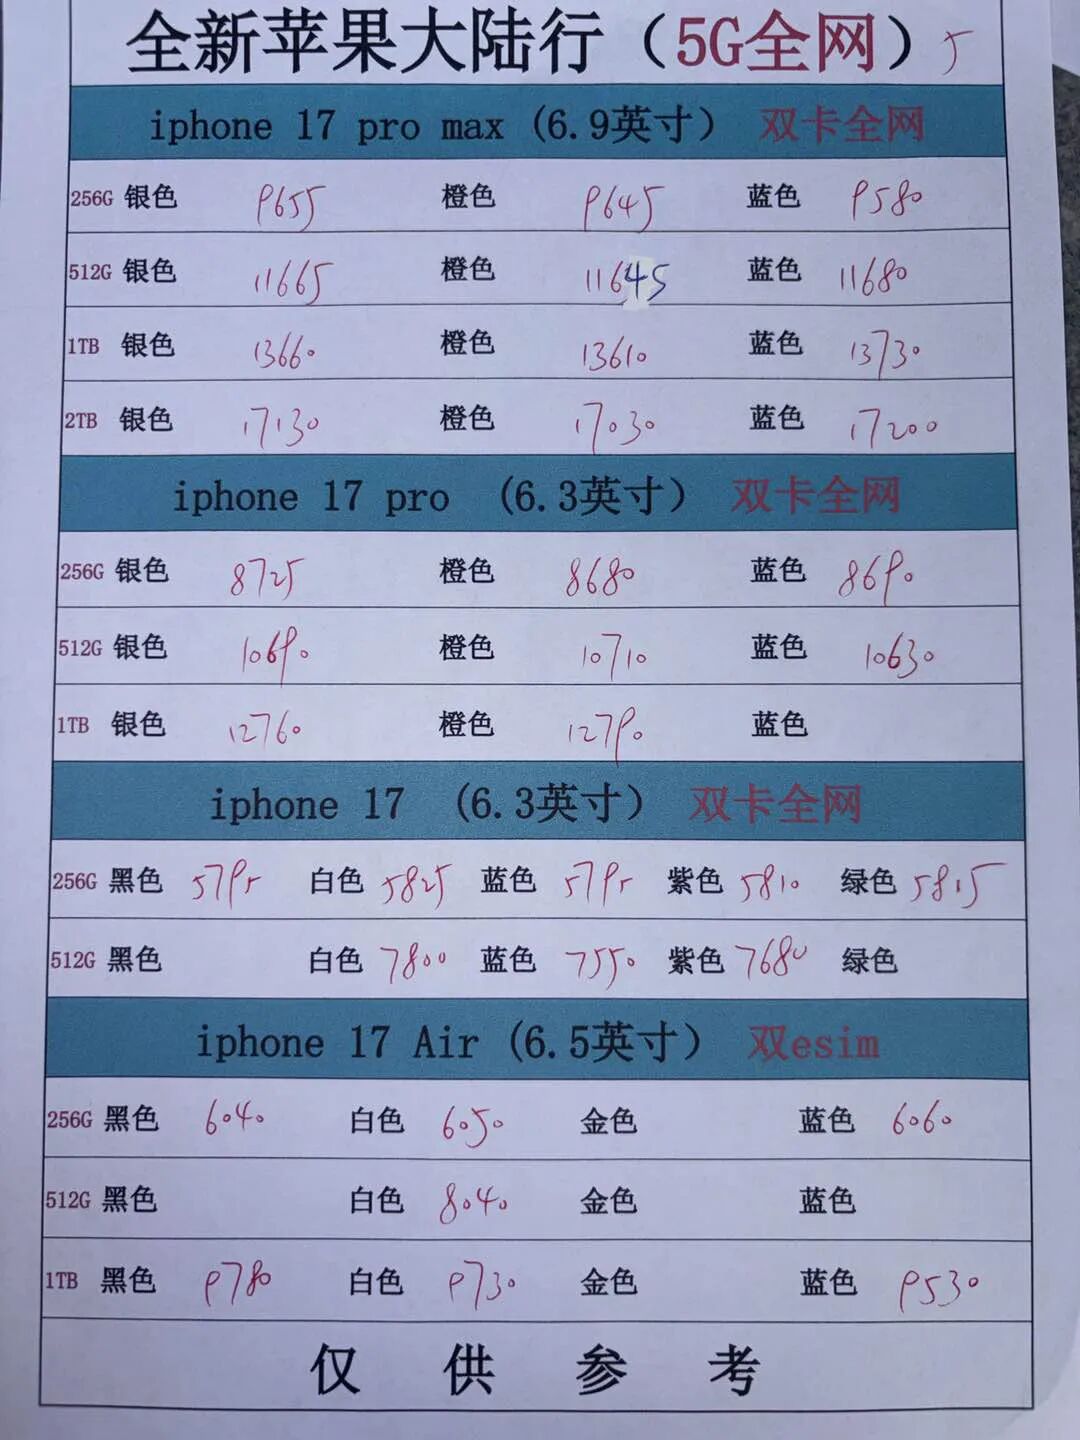 全新苹果大陆行（5G全网）5
iphone 17 pro max (6.9英寸） 双卡全网
256G 银色 9655 橙色 9645 蓝色 9580
512G 银色 11665 橙色 11645 蓝色 11680
1TB 银色 13660 橙色 13610 蓝色 13730
2TB 银色 17130 橙色 17030 蓝色 17200
iphone 17 pro (6.3英寸） 双卡全网
256G 银色 8725 橙色 8680 蓝色 8690
512G 银色 10690 橙色 10710 蓝色 10630
1TB 银色 12760 橙色 12790 蓝色
iphone 17 (6.3英寸） 双卡全网
256G 黑色 5795 白色 5825 蓝色 5795 紫色 5810 绿色 5815
512G 黑色 白色 7800 蓝色 7550 紫色 7680 绿色
iphone 17 Air (6.5英寸） 双esim
256G 黑色 6040 白色 6050 金色 蓝色 6060
512G 黑色 白色 8040 金色 蓝色
1TB 黑色 9780 白色 9730 金色 蓝色 9530
仅供参考